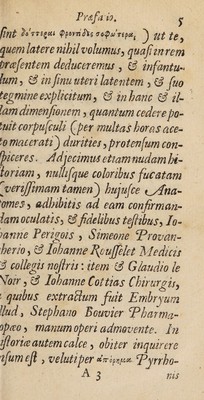 Præfatio. 5
sint δεύτεραι φροντίδες σοφώτεραι ) ut te,
quem latere nihil volumus, quasi in rem
præsentem deduceremus , & infantu-
lum, & in sinu uteri latentem , & suo
tegmine explicitum, & in hanc & il-
lam dimensionem , quantum cedere po-
tuit corpusculi (per multas horas ace-
to macerati) durities, protensum con-
spiceres. Adjecimus etiam nudam hi-
storiam , nullisque coloribus fucatam
(verissimam tamen) hujusce Ana-
tomes , adhibitis ad eam confirman-
dam oculatis, & fidelibus testibus, Io-
hanne Perigois , Simeone Provan-
cherio, & Iohanne Rousselet Medicis
& collegis nostris: item & Glaudio le
Noir, & Iohanne Cottias Chirurgis,
a quibus extractum fuit Embryum
illud, Stephano Bouvier Pharma-
copæo , manum operi admovente. In
istoriæ autem calce, obiter inquirere
visum est , veluti per Pyrrho-
A 3 nis